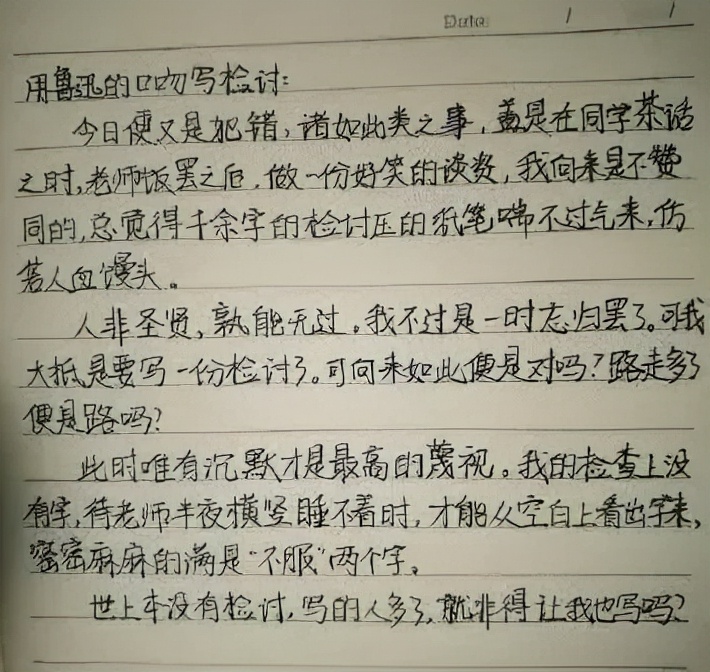 Date / /
用鲁迅的口吻写检讨:
今日便又是犯错,诸如此类之事,盖是在同学茶话
之时,老师饭罢之后,做一份好笑的谈资,我向来是不赞
同的,总觉得千余字的检讨压的纸笔喘不过气来,仿
若人血馒头。
人非圣贤,孰能无过。我不过是一时忘归罢了。可我
大抵是要写一份检讨了。可向来如此便是对吗?路走多了
便是路吗?
此时唯有沉默才是最高的蔑视。我的检查上没
有字,待老师半夜横竖睡不着时,才能从空白上看出字来,
密密麻麻的满是“不服”两个字。
世上本没有检讨,写的人多了,就非得让我也写吗?